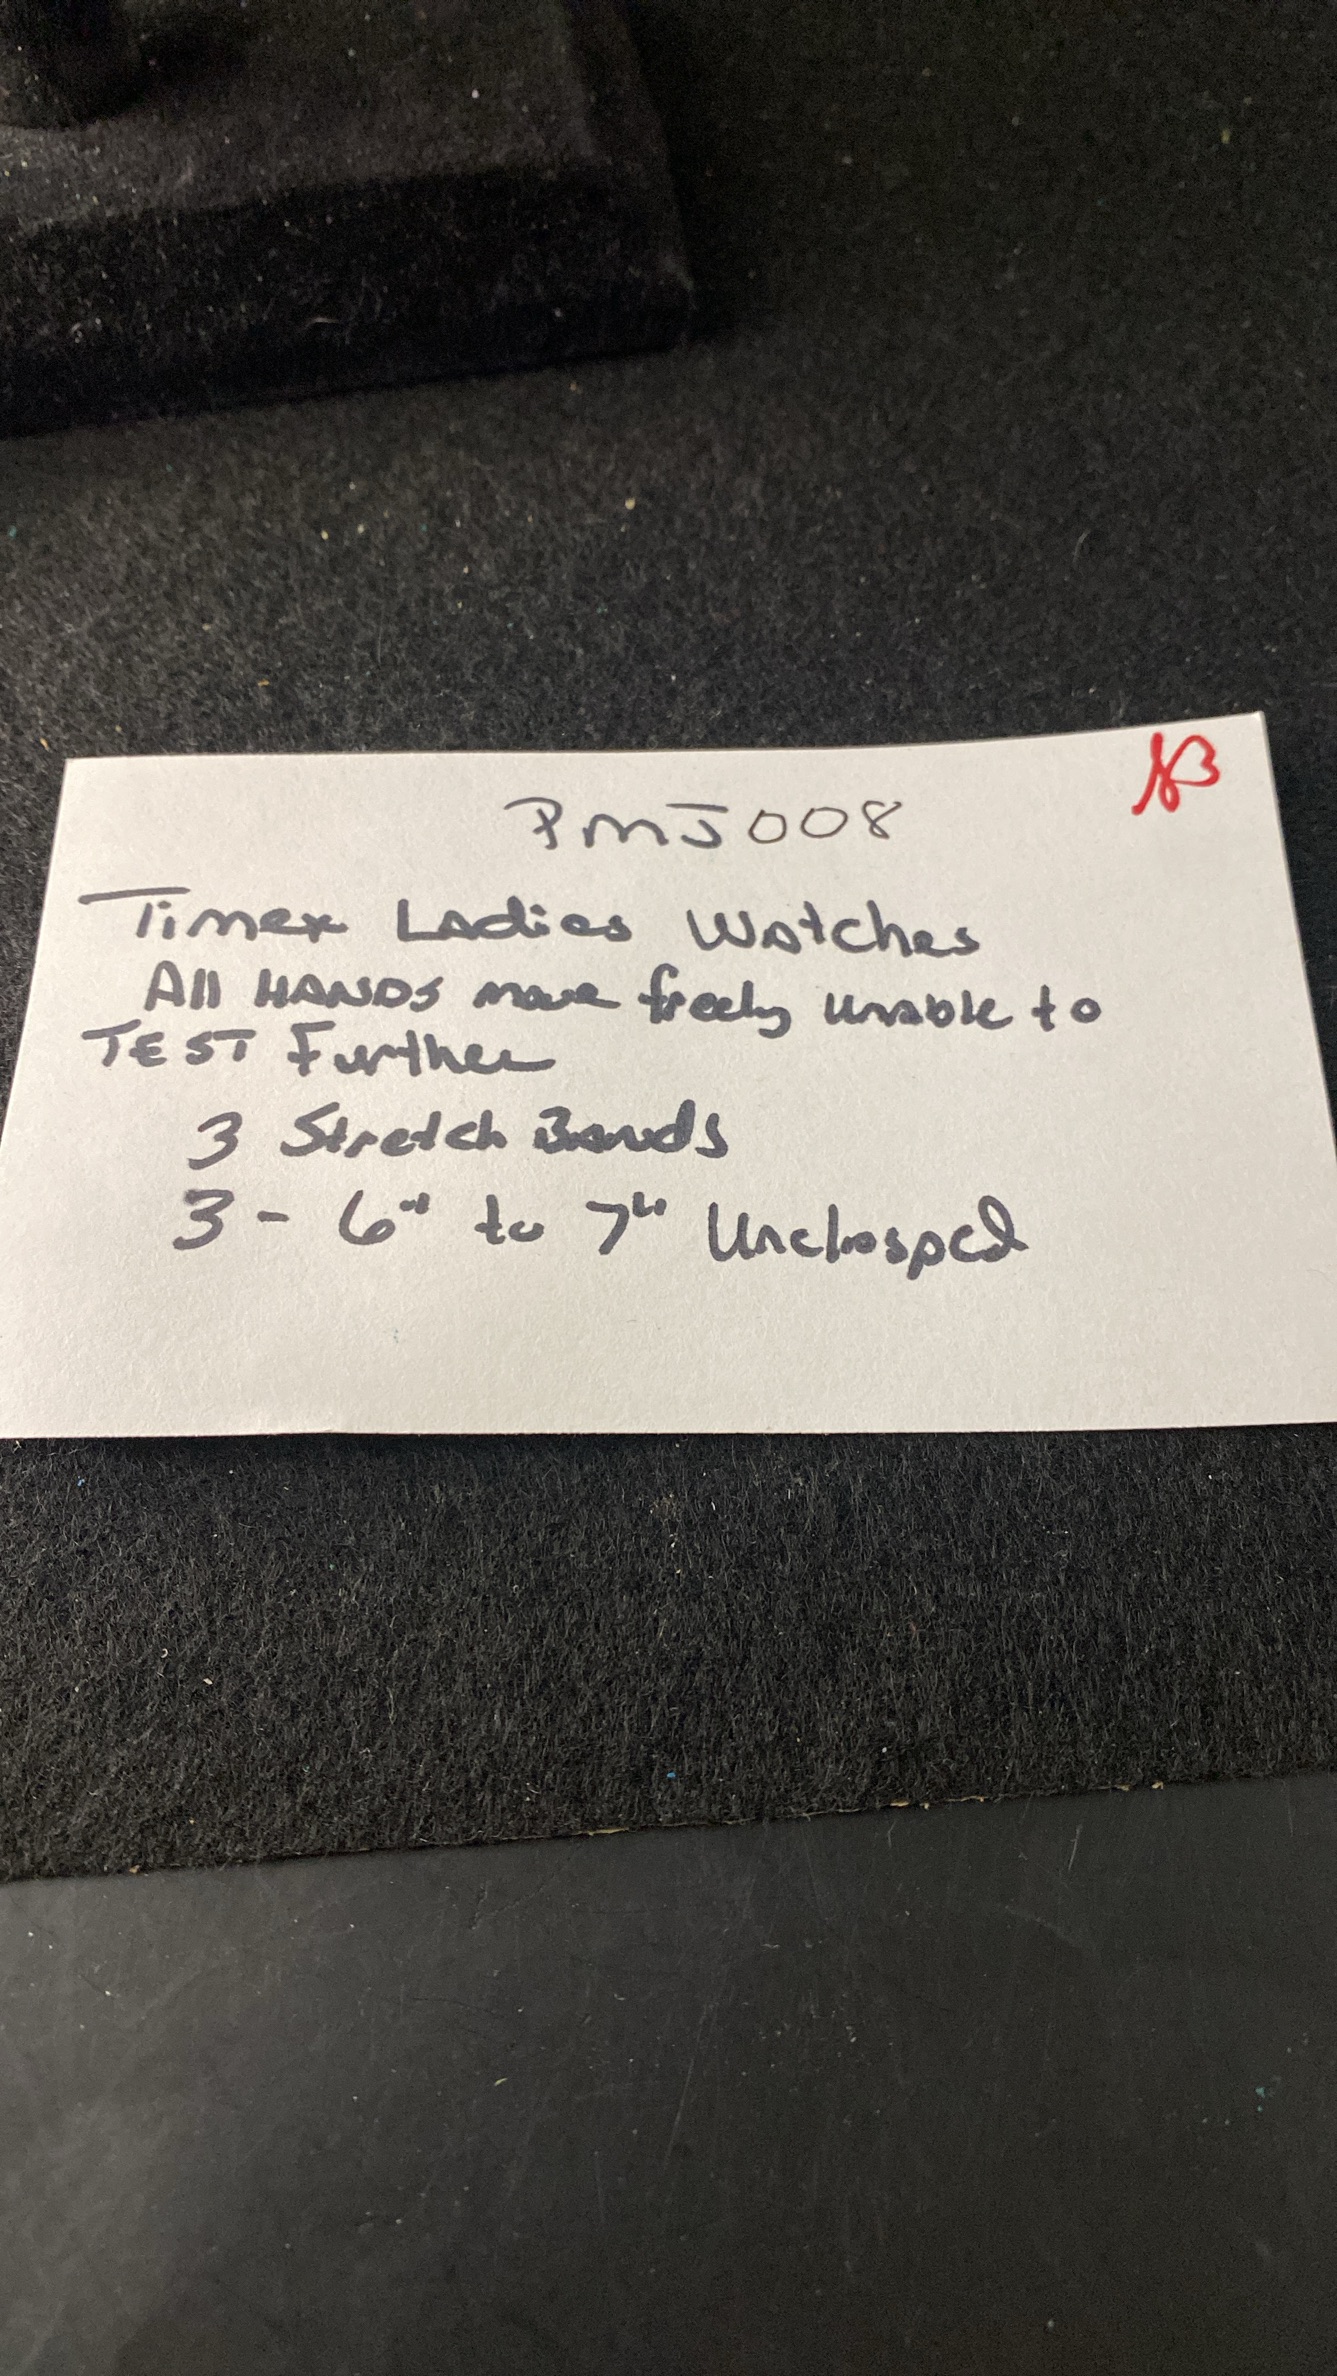 PMJ008
Timex Ladies Watches
All HANDS move freely unable to
TEST Further
3 Stretch Bands
3 - 6" to 7" Unclasped